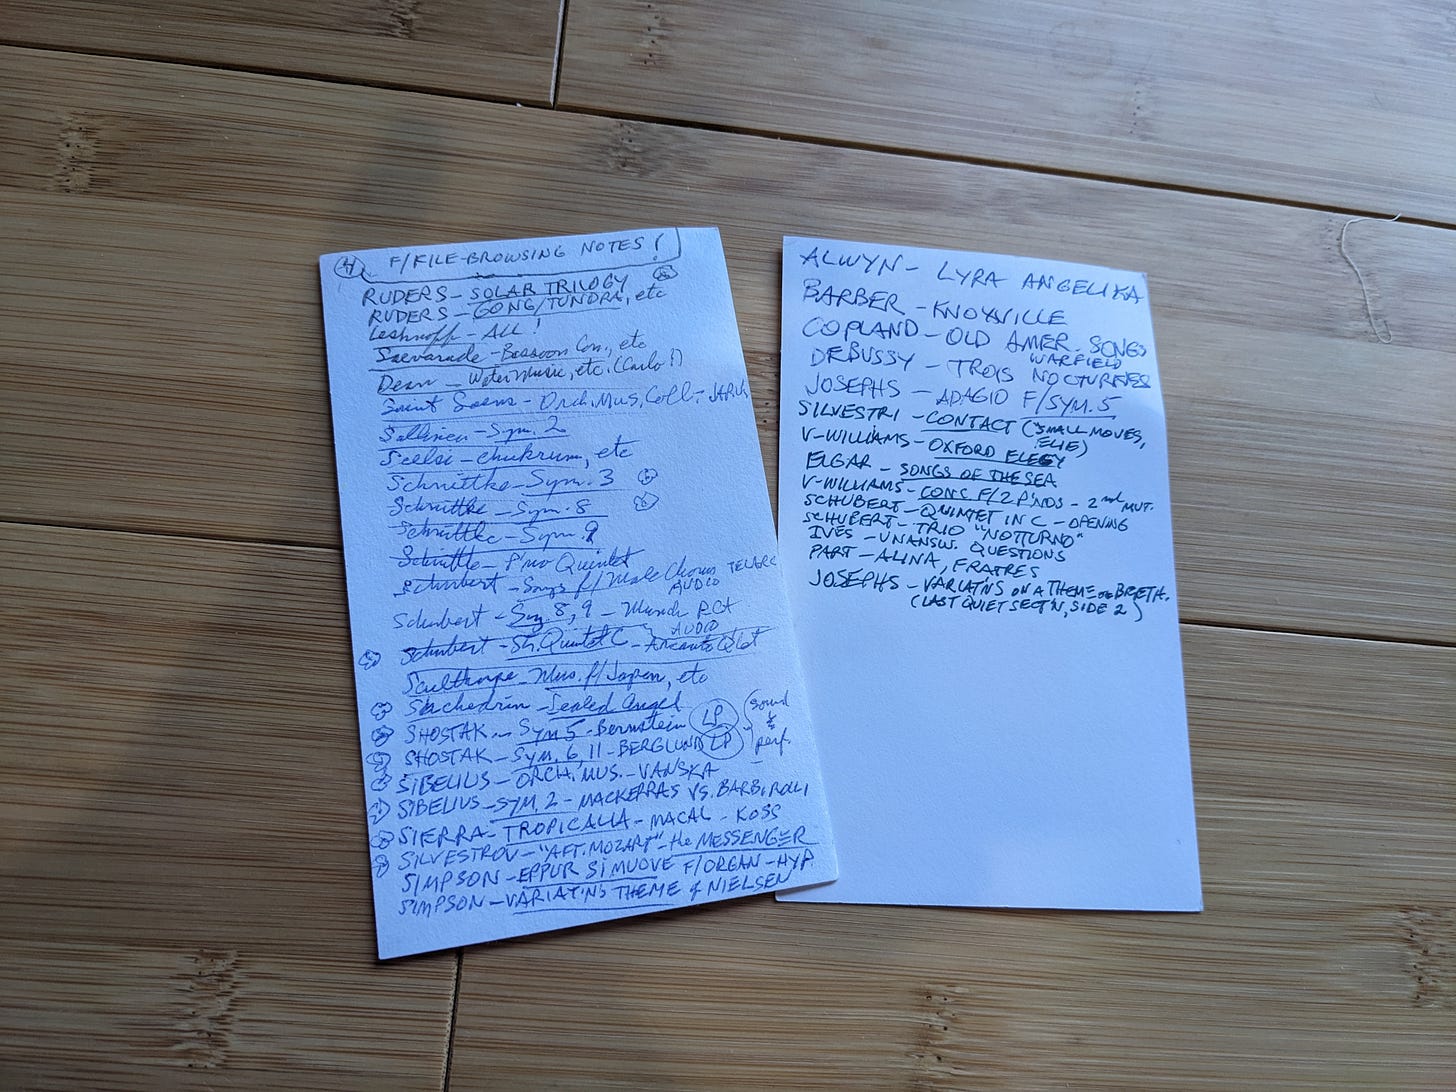 4 F/FILE-BROWSING NOTES!
RUDERS - SOLAR TRILOGY
RUDERS - GONG/TUNDRA, etc
Leshnoff - ALL!
Saevarade - Bassoon Con., etc
Dean - Water Music, etc. (Carlo!)
Saint Saens - Orch. Mus. Coll. - JARVI
Sallinen - Sym. 2
Scelsi - chukrum, etc
Schnittke - Sym. 3
Schnittke - Sym. 8
Schnittke - Sym. 9
Schnittke - P'no Quintet
Schubert - Songs f/Male Chorus TELARC
AUDIO
Schubert - Sym 8, 9 - Munch RCA
AUDIO
Schubert - St. Quintet C -
Sculthorpe - Mus. f/Japan, etc
Shchedrin - Sealed Angel
SHOSTAK - Sym 5 - Bernstein LP
SHOSTAK - Sym. 6, 11 - BERGLUND LP
sound & perf.
SIBELIUS - ORCH. MUS. - VANSKA
SIBELIUS - SYM. 2 - MACKERRAS VS. BARBIROLLI
SIERRA - TROPICALIA - MACAL - KOSS
SILVESTROV - "AFT. MOZART" - the MESSENGER
SIMPSON - EPPUR SI MUOVE F/ORGAN - HYP
SIMPSON - VARIAT'NS THEME of NIELSEN
ALWYN - LYRA ANGELIKA
BARBER - KNOXVILLE
COPLAND - OLD AMER. SONGS
WARFIELD
DEBUSSY - TROIS NOCTURNES
JOSEPHS - ADAGIO F/SYM. 5
SILVESTRI - CONTACT (SMALL MOVES,
ELIE)
V-WILLIAMS - OXFORD ELEGY
ELGAR - SONGS OF THE SEA
V-WILLIAMS - CONC F/2 P'NOS - 2nd MVT.
SCHUBERT - QUINTET IN C - OPENING
SCHUBERT - TRIO "NOTTURNO"
IVES - UNANSW. QUESTIONS
PART - ALINA, FRATRES
JOSEPHS - VARIAT'NS ON A THEME OF BEETH.
(LAST QUIET SECT'N, SIDE 2)